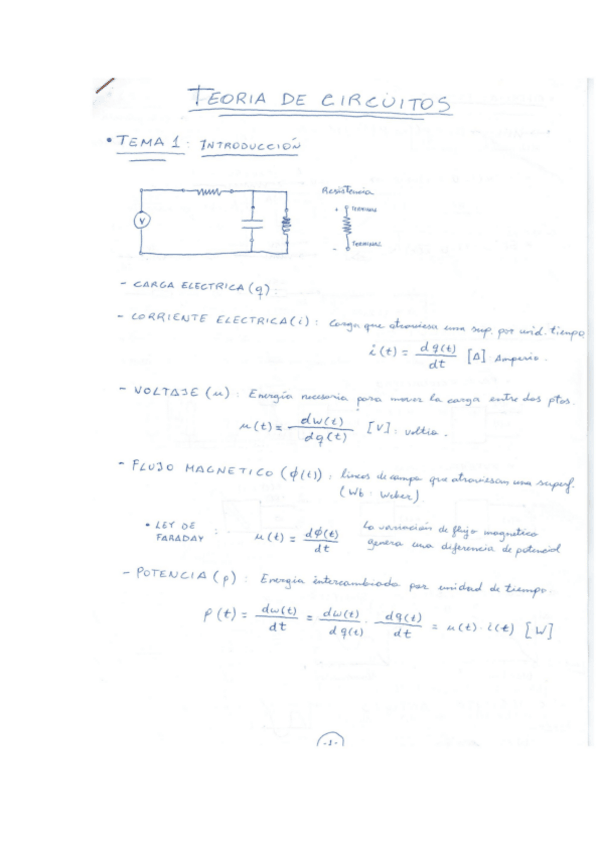 TEORIA DE CIRCUITOS
• TEMA 1: INTRODUCCIÓN
Resistencia
V
+ TERMINAL
- TERMINAL
- CARGA ELECTRICA (q):
- CORRIENTE ELECTRICA (i): Carga que atraviesa una sup. por unid. tiempo
i(t) = dq(t)/dt [A] Amperio.
- VOLTAJE (u): Energía necesaria para mover la carga entre dos ptos.
u(t) = dw(t)/dq(t) [V]: voltio.
- FLUJO MAGNETICO (ϕ(t)): lineas de campo que atraviesan una superf.
(Wb: Weber)
• LEY DE FARADAY: u(t) = dϕ(t)/dt La variación de flujo magnetico
genera una diferencia de potencial
- POTENCIA (p): Energia intercambiada por unidad de tiempo.
p(t) = dw(t)/dt = dw(t)/dq(t) · dq(t)/dt = u(t)·i(t) [W]
-1-